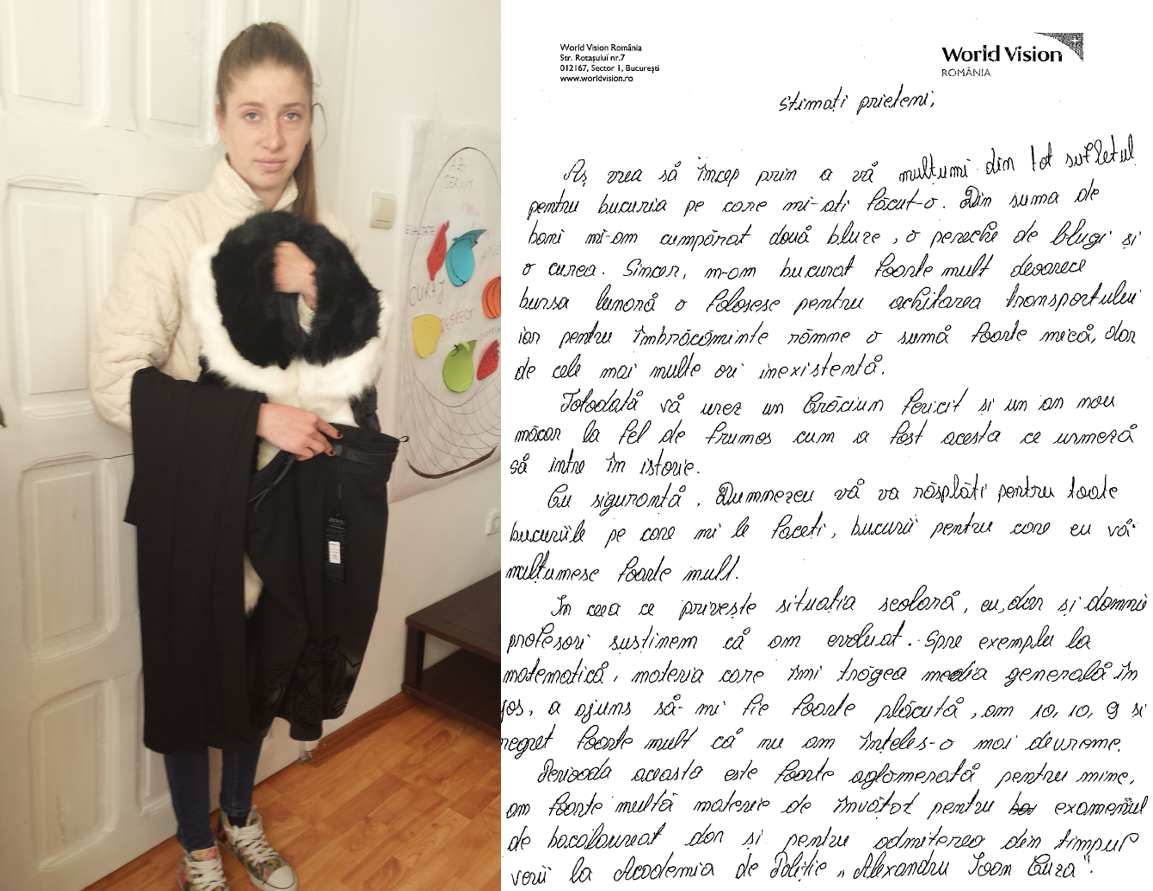 World Vision România
Str. Rotașului nr.7
012167, Sector 1, București
www.worldvision.ro
World Vision
ROMÂNIA
Stimați prieteni,
Aș vrea să încep prin a vă mulțumi din tot sufletul
pentru bucuria pe care mi-ați făcut-o. Din suma de
bani mi-am cumpărat două bluze, o pereche de blugi și
o curea. Sincer, m-am bucurat foarte mult deoarece
bursa lunară o folosesc pentru achitarea transportului
iar pentru îmbrăcăminte rămâne o sumă foarte mică, dar
de cele mai multe ori inexistentă.
Totodată vă urez un Crăciun fericit si un an nou
măcar la fel de frumos cum a fost acesta ce urmeră
să intre în istorie.
Cu siguranță, Dumnezeu vă va răsplăti pentru toate
bucuriile pe care mi le faceți, bucurii pentru care eu vă
mulțumesc foarte mult.
În ceea ce privește situația scolară, eu, dar și domnii
profesori susținem că am evoluat. Spre exemplu la
matematică, materia care îmi trăgea media generală în
jos, a ajuns să-mi fie foarte plăcută, am 10, 10, 9 si
regret foarte mult că nu am înțeles-o mai devreme.
Perioada aceasta este foarte aglomerată pentru mine,
am foarte multă materie de învățat pentru examenul
de bacalaureat dar și pentru admiterea din timpul
verii la Academia de Poliție „Alexandru Ioan Cuza".
CURAJ
RESPECT